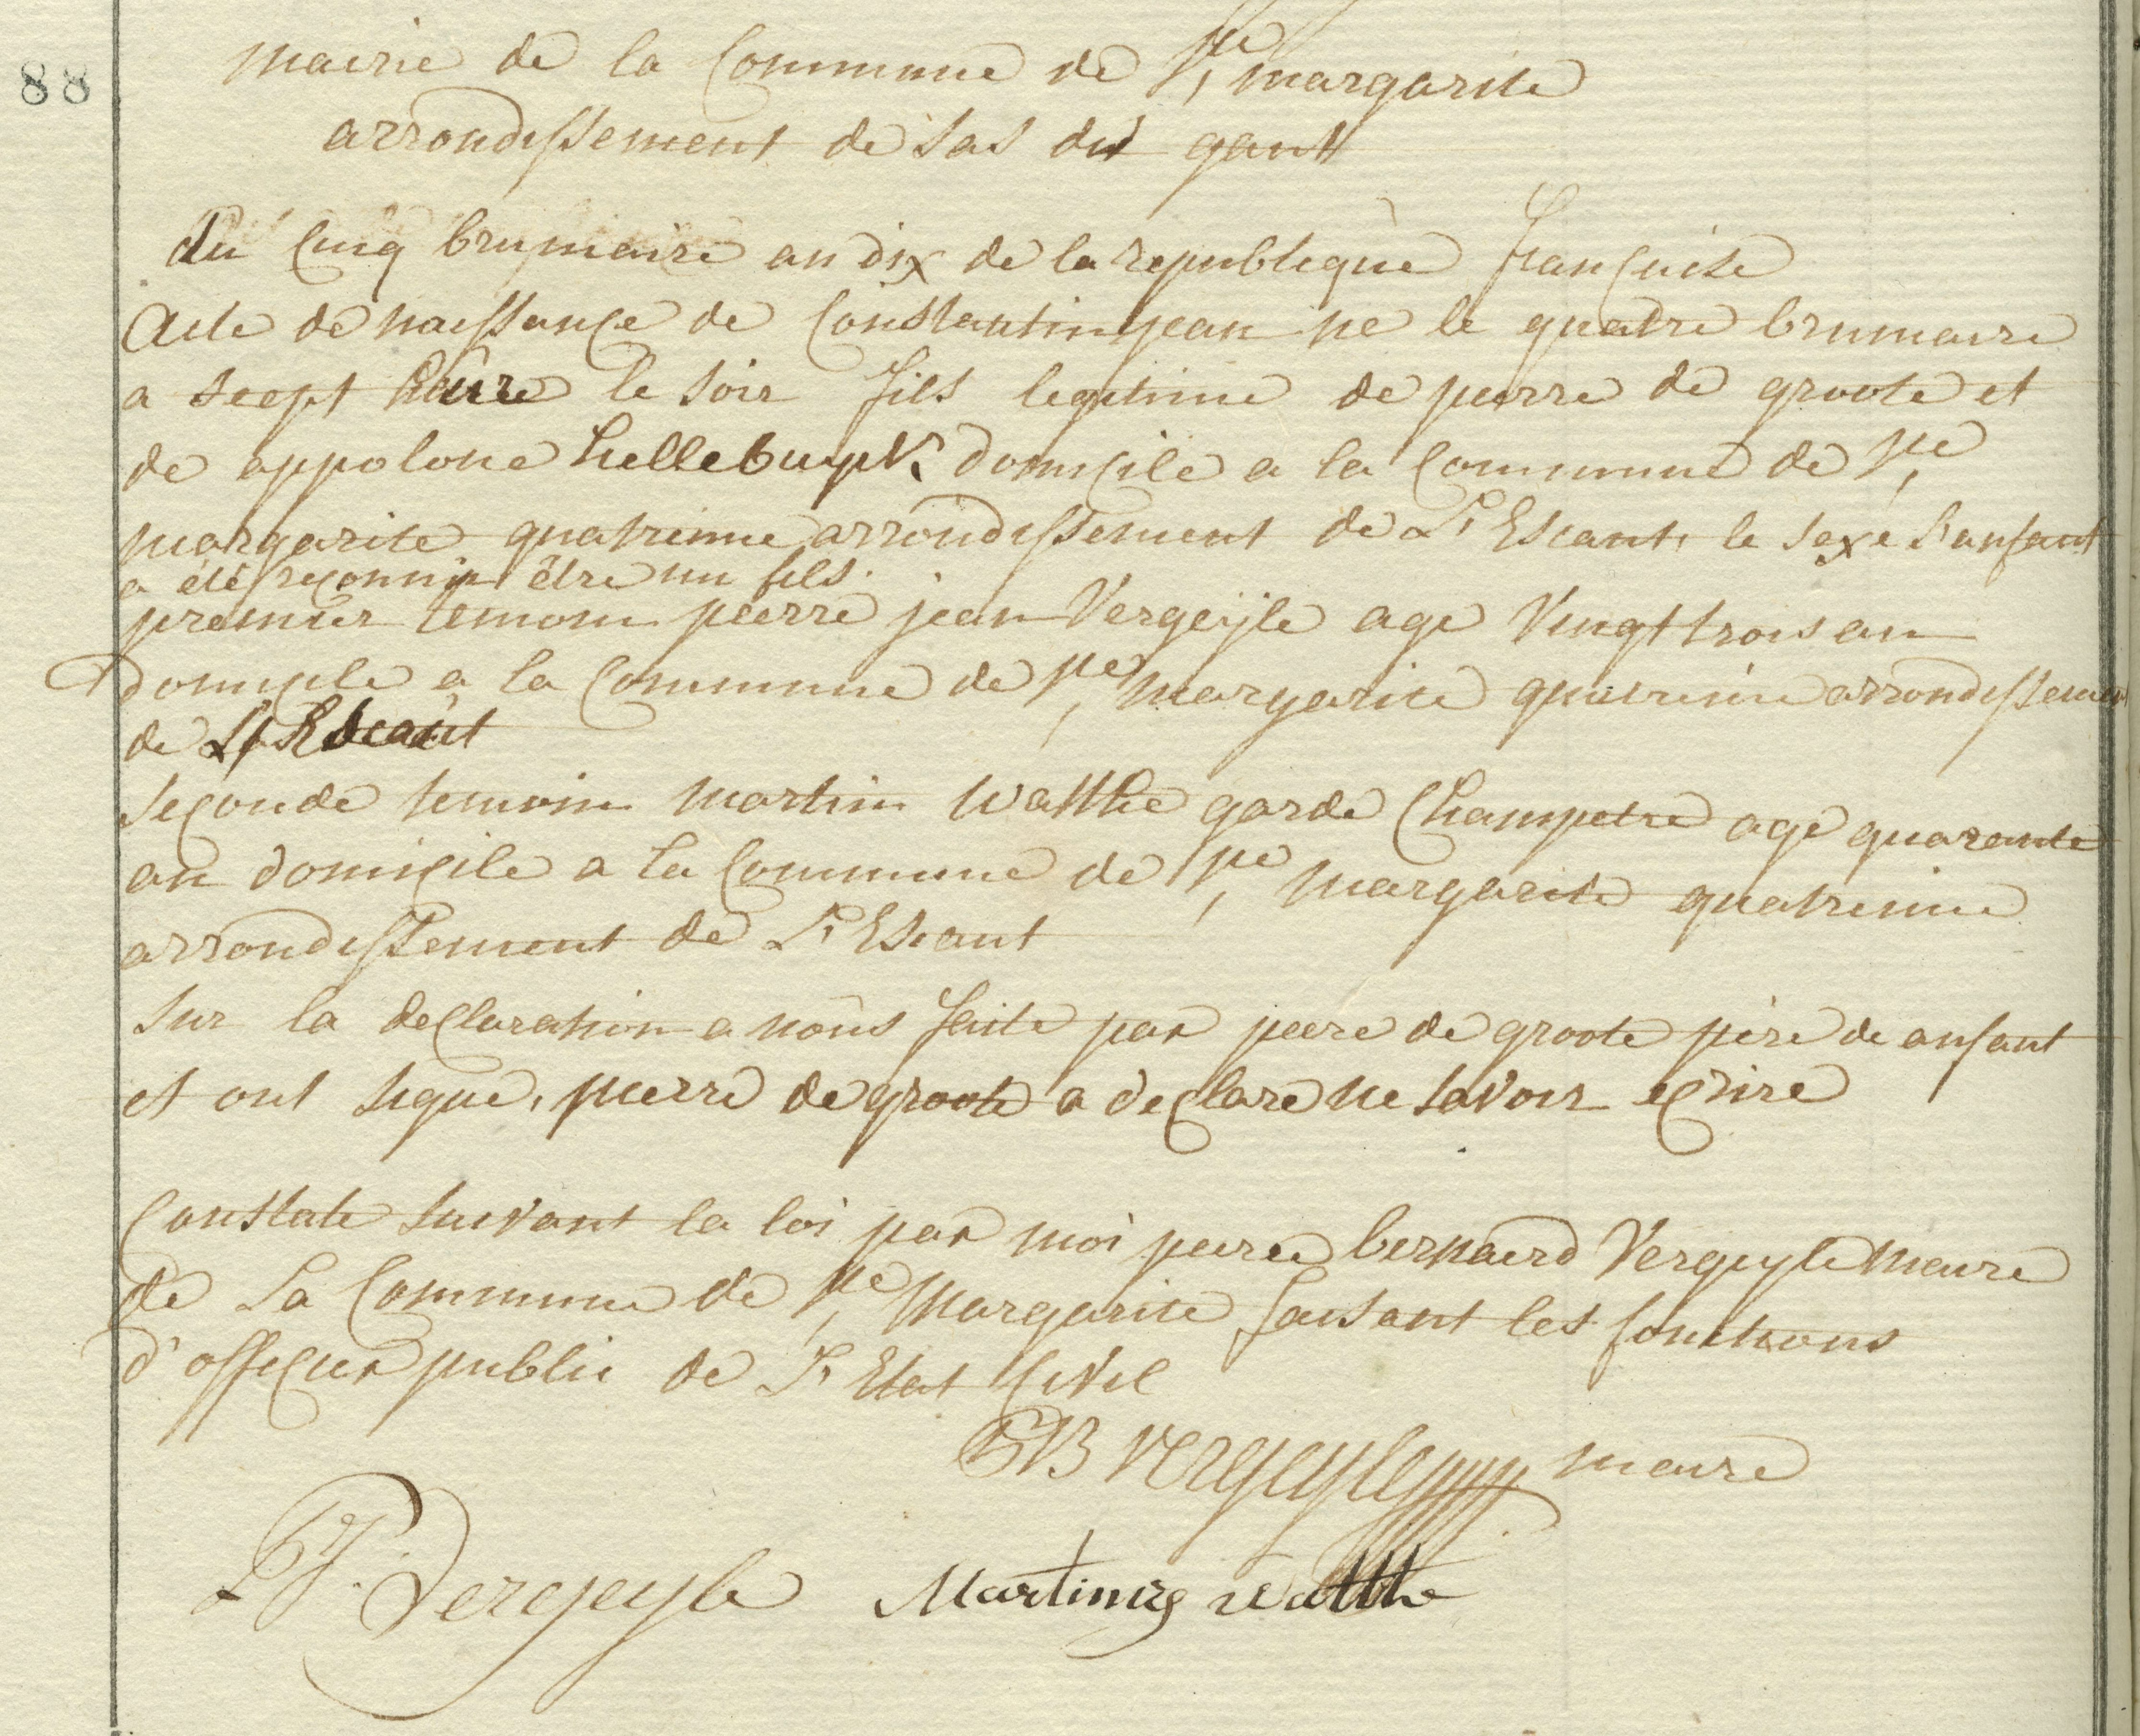 88
mairie de la Commune de Ste margarite
arrondissement de sas du gant
du Cinq brumaire an dix de la republique francaise
Acte de naissance de Constantin jean né le quatre brumaire
a scept heure le soir fils legitime de pierre de groote et
de appolone hellebuyk domicile a la Commune de Ste
margarite quatrieme arrondissement de L'Escaut, le sexe l'anfant
a été reconnu être un fils.
premier temoin pierre jean Vergeÿle age Vingt trois an
domicile a la Commune de Ste margarite quatrieme arrondissement
de L'Escaut
seconde temoin martin Watthé garde Champetre agé quarante
an domicile a la Commune de Ste margarite quatrieme
arrondissement de L'Escaut
sur la declaration a nous faite par piere de groote père de anfant
et ont signé, pierre de groote a declare ne savoir ecrire
Constaté suivant la loi par moi piere bernaerd Vergeyle maire
de La Commune de Ste margarite faisant les fonctions
d'officier public de L'Etat Civil
PB vergeyle maire
PJ. Vergeyle Martinus Watthe